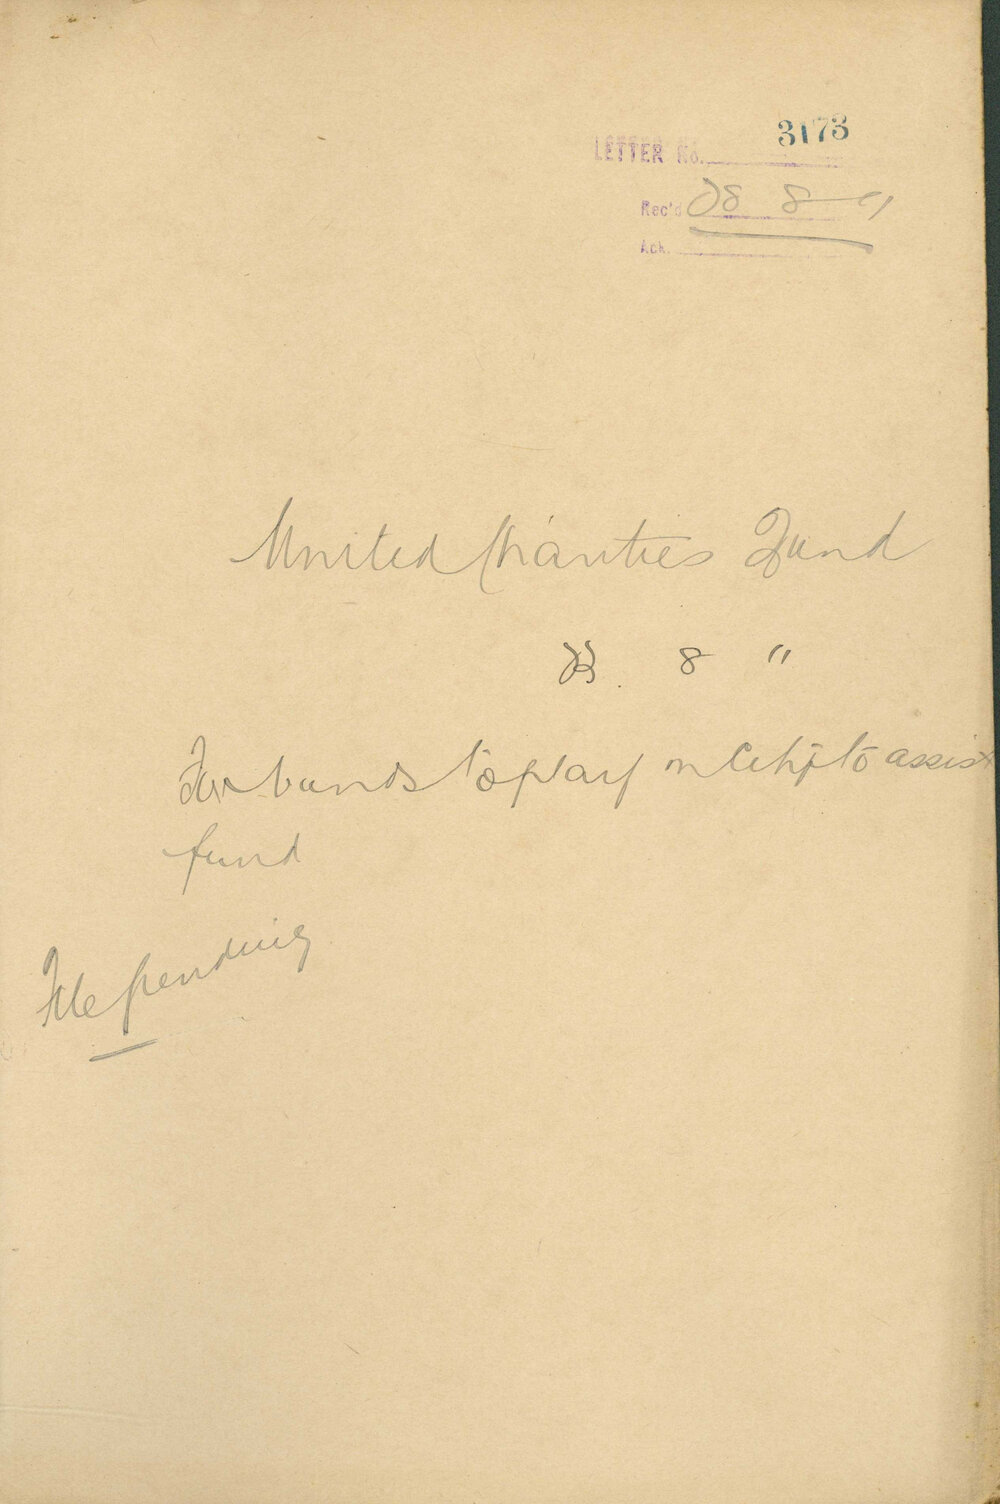 LETTER No. 3173
Rec'd 28 8 11
Ack.
United Charities Fund
8 "
For bands to play on to assist
fund
File pending